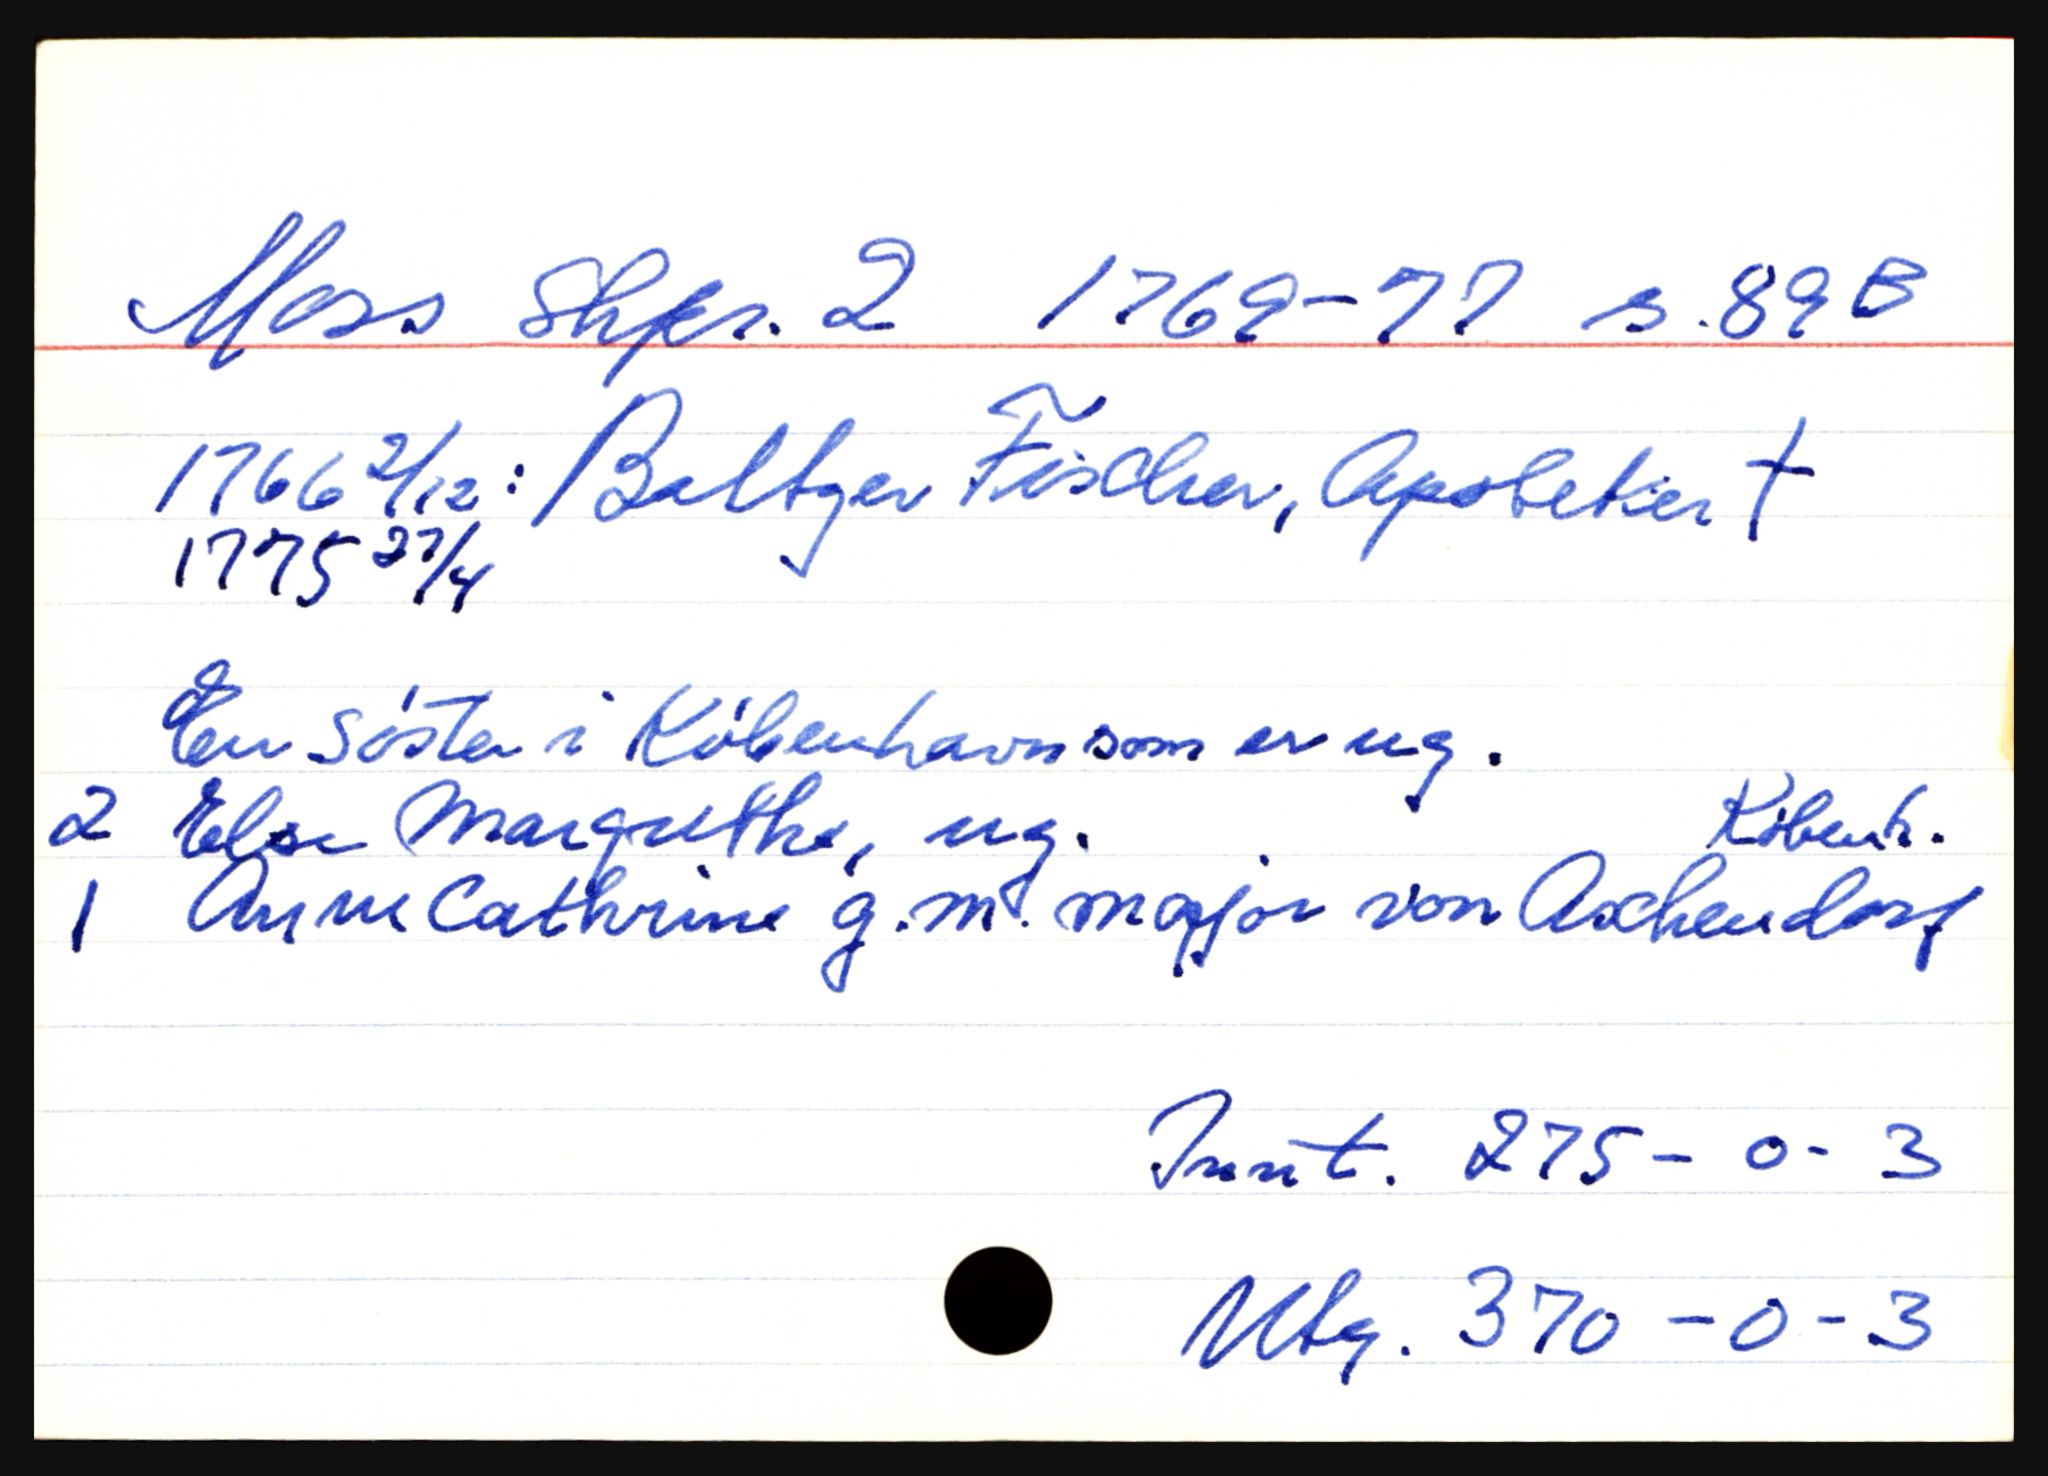 Moss Skpr. 2 1769-77 s. 89 B
1766 2/12: Baltzer Fischer, Apoteker †
1775 27/4
En søster i København som er ug.
2 Else Margrethe, ug. Københ.
1 Anne Cathrine g.m. major von Aschendorf
Innt. 275 - 0 - 3
Utg. 370 - 0 - 3